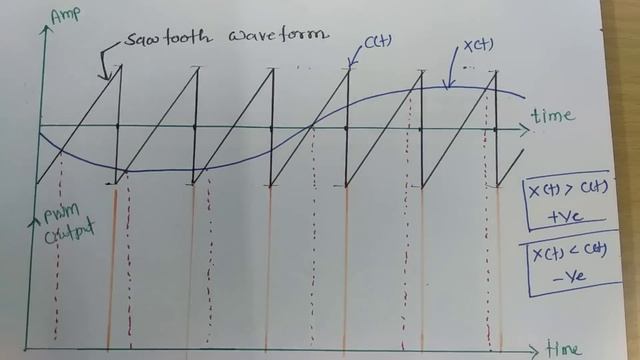 Amp
Sawtooth waveform
C(t)
X(t)
time
X(t) > C(t)
+Ve
PWM
Output
X(t) < C(t)
-Ve
time